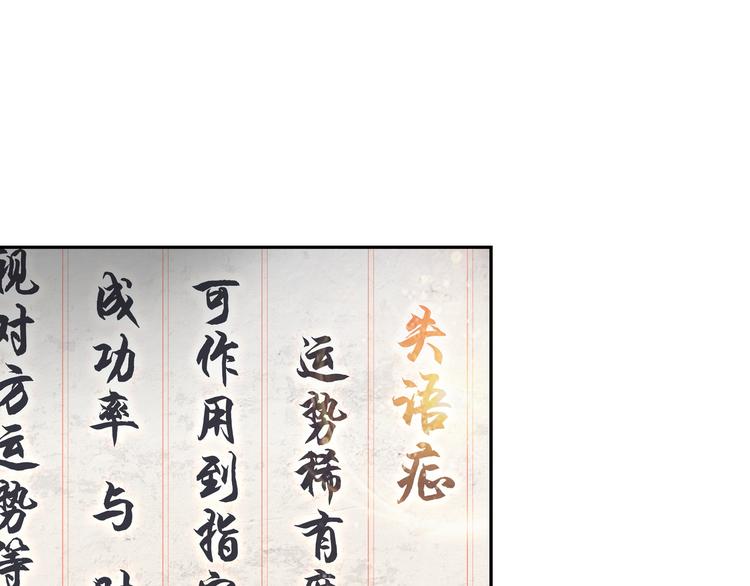 失语症
运势稀有
可作用到指
成功率与
视对方运势等